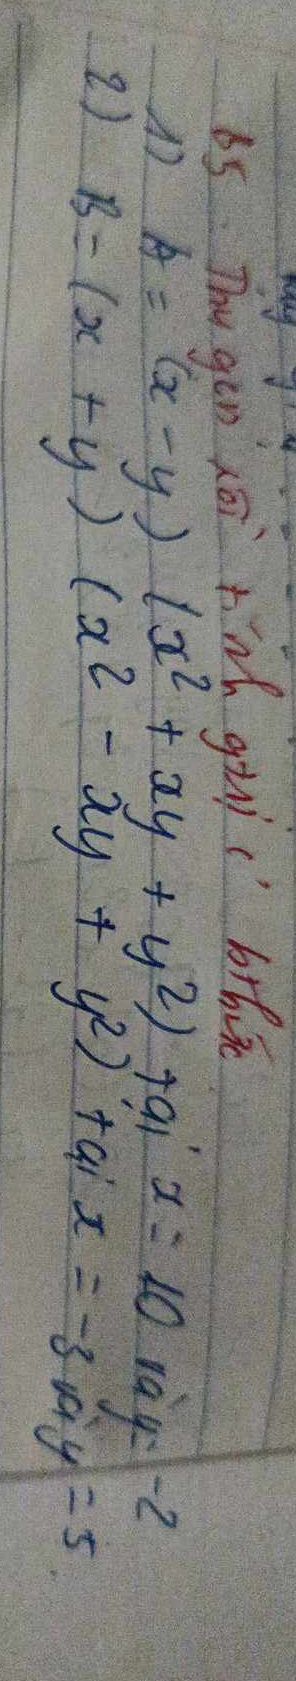 b5. Thu gọn rồi tính gtrị c' bthức
1) A = (x - y) (x² + xy + y²) tại x = 10 và y = -2
2) B = (x + y) (x² - xy + y²) tại x = -3 và y = 5